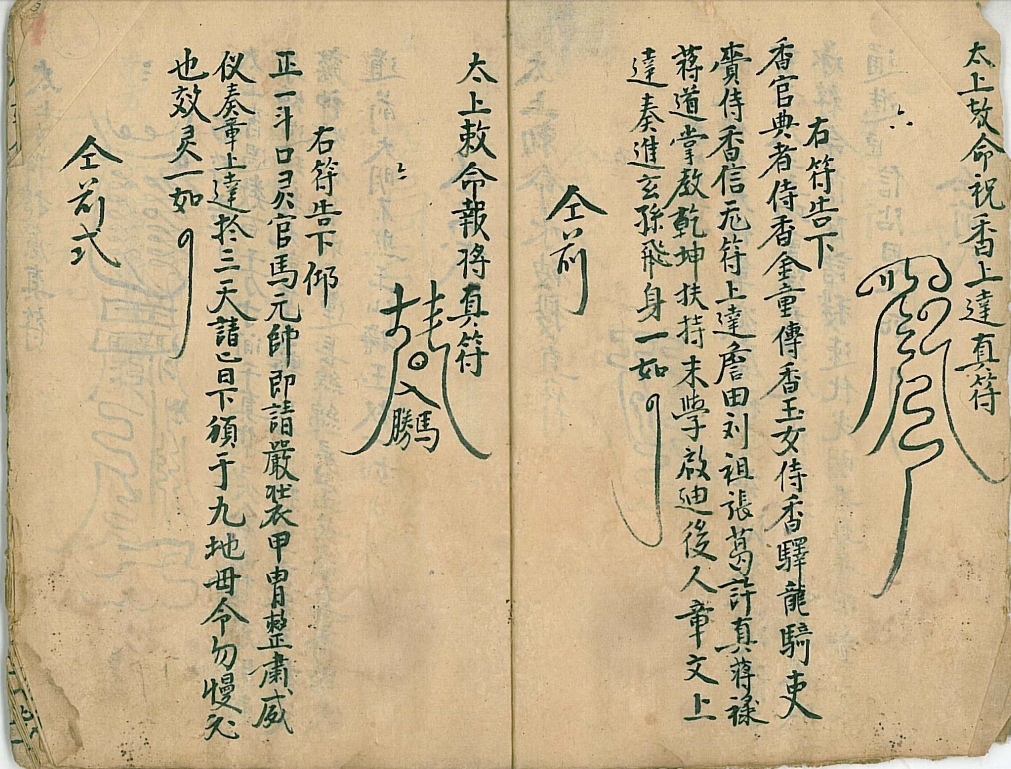 太上敕命祝香上達真符
右符告下
香官典者侍香金童傳香玉女侍香驛龍騎吏
賷侍香信无符上達詹田刘祖張葛許真蒋祿
蒋道掌教乾坤扶持末學啟迪後人章文上
達奏進玄孫飛身一如
仝前
太上敕命報将真符
騰馬
右符告下仰
正一斗口灵官馬元帥即請嚴裝甲胄整肅威
仪奏章上達於三天請旨下頒于九地毋令勿慢
也效灵一如
仝前式